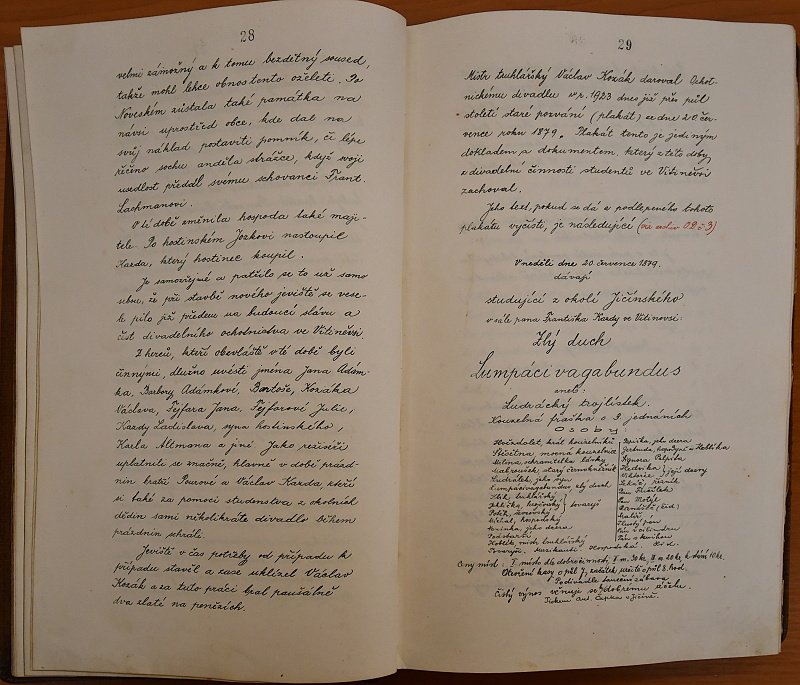 28
velmi zámožný a k tomu bezdětný soused,
takže mohl lehce obnos tento oželeti. Po
Noveském zůstala také památka na
návsi uprostřed obce, kde dal na
svůj náklad postaviti pomník, či lépe
řečeno sochu anděla strážce, když svoji
usedlost předal svému schovanci Frant.
Lachmanovi.
O té době změnila hospoda také maji-
tele. Po hostinském Jozkovi nastoupil
Kazda, který hostinec koupil.
Je samozřejmé a patřilo se to už samo
sebou, že při stavbě nového jeviště se vese-
le pilo již předem na budoucí slávu a
čest divadelního ochotnictva ve Vitiněvsi.
Z herců, kteří obzvláště v té době byli
činnými, dlužno uvésti jména Jana Adám-
ka, Barbory Adámkové, Bartoše, Kozáka
Václava, Fejfara Jana, Fejfarové Julie,
Kazdy Ladislava, syna hostinského,
Karla Altmana a jiné. Jako režiséři
uplatnili se značně, hlavně v době prázd-
nin bratří Pourové a Václav Kazda, kteří
si také za pomoci studenstva z okolních
dědin sami několikráte divadlo během
prázdnin sehráli.
Jeviště v čas potřeby od případu k
případu stavěl a zase uklízel Václav
Kozák a za tuto práci bral paušálně
dva zlaté na penězích.
29
Mistr truhlářský Václav Kozák daroval Ochot-
nickému divadlu v r. 1923 dnes již přes půl
století staré pozvání (plakát) ze dne 20. čer-
vence roku 1879. Plakát tento je jediným
dokladem a dokumentem, který z této doby
z divadelní činnosti studentů ve Vitiněvsi
zachoval.
Jeho text, pokud se dá z podlepeného tohoto
plakátu vyčísti, je následující (viz archiv 02 č 3)
V neděli dne 20. července 1879.
dávají
studující z okolí Jičínského
v sále pana Františka Kazdy ve Vitinovsi:
Zlý duch
Lumpáci vagabundus
aneb:
Ludrácký trojlístek.
Kouzelná fraška o 3 jednáních
Osoby:
Hvězdolet, král kouzelníků
Pepička, jeho dcera
Štěstěna mocná kouzelnice
Gertruda, hospodyně u Hoblíka
Milina, ochranitelka lásky
Signora Palpiti
Mabroušek, starý černokněžník
Hedvika } její dcery
Ludrátek, jeho syn
Viktorie
Lumpácivagabundus, zlý duch
řezník
Klih, truhlářský } tovaryši
Jehlička, krejčovský
Pan Motýl
Malíř
Michal, hospodský
Tlustý pán
Rezinka, jeho dcera
Pán s cylindrem
Podstavon
Pán s knihou
Hoblík, mistr truhlářský
Tovaryši. Muzikanti. Hospodská. Lid.
Ceny míst: I. místo dle dobročinnosti, II. m. 30 kr. III. m. 20 kr. k stání 10 kr.
Otevření kasy o půl 7, začátek určitě o půl 8. hod.
Po divadle taneční zábava
Čistý výnos věnuje se dobrému účelu.
Tiskem Ant. Čapka v Jičíně.